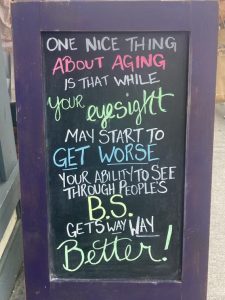 ONE NICE THING
ABOUT AGING
IS THAT WHILE
YOUR eyesight
MAY START TO
GET WORSE
YOUR ABILITY TO SEE
THROUGH PEOPLE'S
B.S.
GETS WAY WAY
Better!